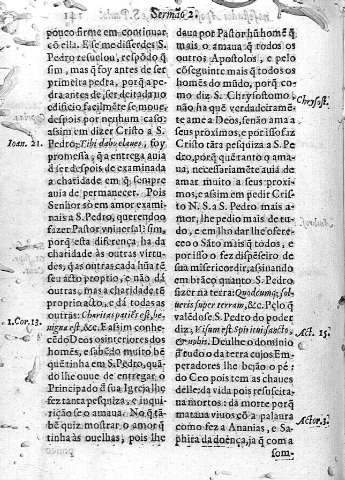 Sermão 2.
pouco firme em continuar
cõ ella. E se me disserdes S.
Pedro resuelou, respõdo q̃
sim, mas q̃ foy antes de ser
primeira pedra, porq̃ a pe-
dra antes de ser deitada no
edificio facilmẽte se moue,
despois por nenhum caso:
assim em dizer Cristo a S.
Ioan. 21.
Pedro: Tibi dabo claues, foy
promessa, q̃ a entrega auia
de ser despois de examinada
a charidade em q̃ sempre
auia de permanecer. Pois
Senhor sò em amor exami-
nais a S. Pedro, querendoo
fazer Pastor vniuersal: sim,
porq̃ esta differença ha da
charidade às outras virtu-
des, q̃ as outras cada hũa tẽ
seu acto proprio, e não dá
outras, mas a charidade tẽ
proprio acto, e dá todas as
outras: Charitas patiẽs est, be-
1. Cor. 13.
nigna est, &c. E assim conhe-
cẽdo Deos os interiores dos
homẽs, e sabẽdo muito bẽ
quẽ tinha em S. Pedro, quã-
do lhe ouue de entregar o
Principado da sua Igreja lhe
fez tanta pesquiza, e inqui-
rição se o amaua. No q̃ tã-
bẽ quiz mostrar o amor q̃
tinha às ouelhas, pois lhe
daua por Pastor hũ homẽ q̃
mais o amaua q̃ todos os
outros Apostolos, e pelo
cõseguinte mais q̃ todos os
homẽs do mũdo, porq̃ co-
mo diz S. Chrysostomo,
Chrysost.
não ha quẽ verdadeiramẽ-
te ame a Deos, senão ama a
seus proximos, e por isso faz
Cristo tãta pesquiza a S. Pe-
dro, porq̃ quẽ tanto o ama-
ua, necessariamẽte auia de
amar muito a seus proxi-
mos, e assim em pedir Cris-
to N. S. a S. Pedro mais a-
mor, lhe pedio mais de tu-
do, e em lho dar lhe offere-
ceo o Sãto mais q̃ todos, e
por isso o fez dispẽseiro de
sua misericordia, assinando
em brãco quanto S. Pedro
fizer na terra: Quodcumq; sol-
ueris super terram, &c. Pelo q̃
valẽdose S. Pedro do poder
diz: Visum est Spiritui sancto,
Act. 15.
& nobis. Deulhe o dominio
de tudo o da terra cujos Em-
peradores lhe beijão o pé:
do Ceo pois tem as chaues
delle: da vida pois resuscita-
ua mortos: da morte porq̃
mataua viuos cõ a palaura
como fez a Ananias, e Sa-
Actor. 3.
phira da doença, ja q̃ com a
som-